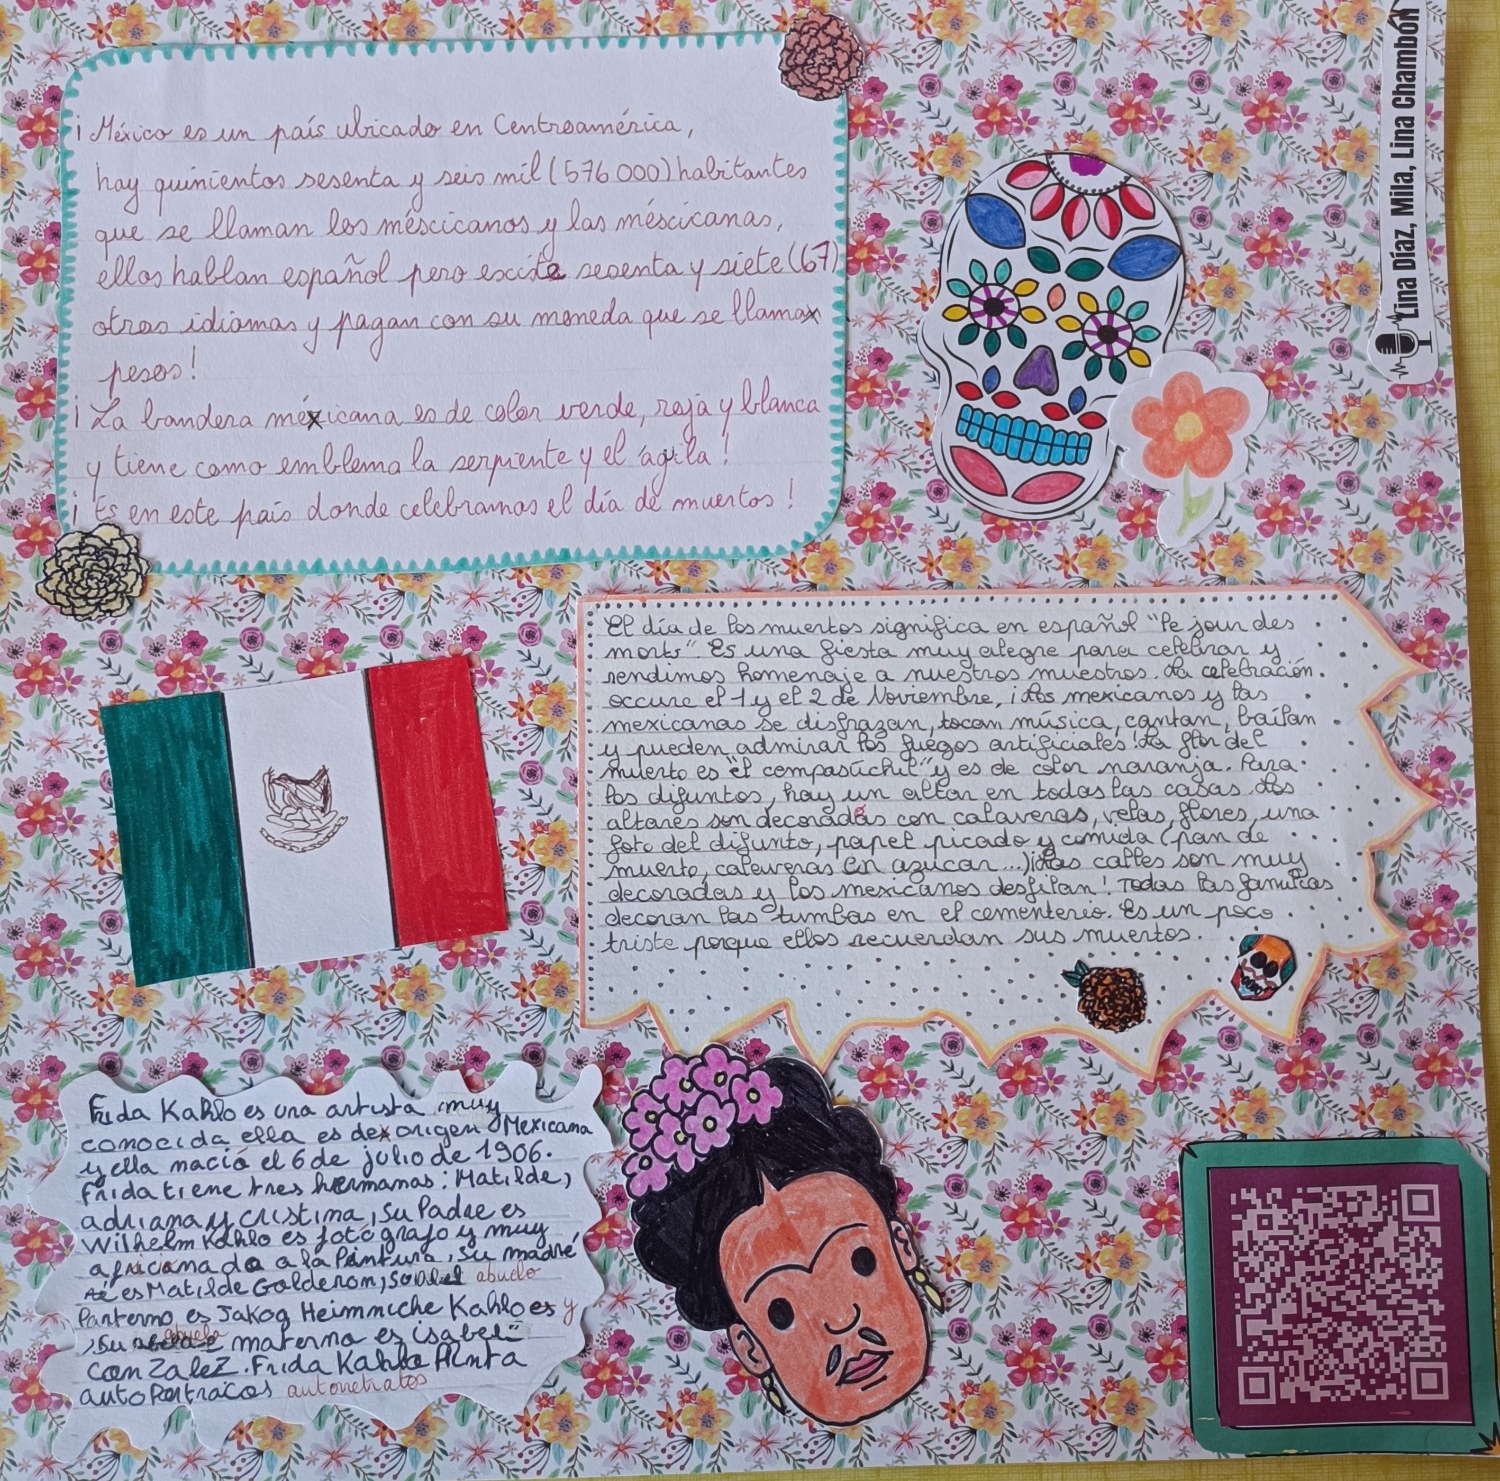 ¡ México es un país ubicado en Centroamérica,
hay quinientos sesenta y seis mil (576 000) habitantes
que se llaman los méscicanos y las méscicanas,
ellos hablan español pero excite sesenta y siete (67)
otros idiomas y pagan con su moneda que se llama
pesos !
¡ La bandera méxicana es de color verde, roja y blanca
y tiene como emblema la serpiente y el águila !
¡ Es en este país donde celebramos el día de muertos !
Lina Díaz, Mila, Lina Chambón
El día de los muertos significa en español "le jour des
morts". Es una fiesta muy alegre para celebrar y
rendimos homenaje a nuestros muestros. La celebración
occure el 1 y el 2 de Noviembre, ¡Los mexicanos y las
mexicanas se disfrazan, tocan música, cantan, bailan
y pueden admirar los fuegos artificiales! La flor del
muerto es "el compasúchil" y es de color naranja. Para
los difuntos, hay un altar en todas las casas. Los
altares son decorados con calaveras, velas, flores, una
foto del difunto, papel picado y comida (pan de
muerto, calaveras en azúcar...) ¡Las calles son muy
decoradas y los mexicanos desfilan! Todas las familias
decoran las tumbas en el cementerio. Es un poco
triste porque ellos recuerdan sus muertos.
Frida Kahlo es una artista muy
conocida ella es de origen Mexicana
y ella nació el 6 de julio de 1906.
Frida tiene tres hermanas : Matilde,
adriana y Cristina, Su Padre es
Wilhelm Kahlo es fotógrafo y muy
africanado a la Pintura, Su madre
es Matilde Galderom, Su abuelo
Panterno es Jakog Heimmiche Kahlo es y
, Su abuela materna es isabel
ConZaleZ. Frida Kahlo Pinta
autoportracos autoretratos